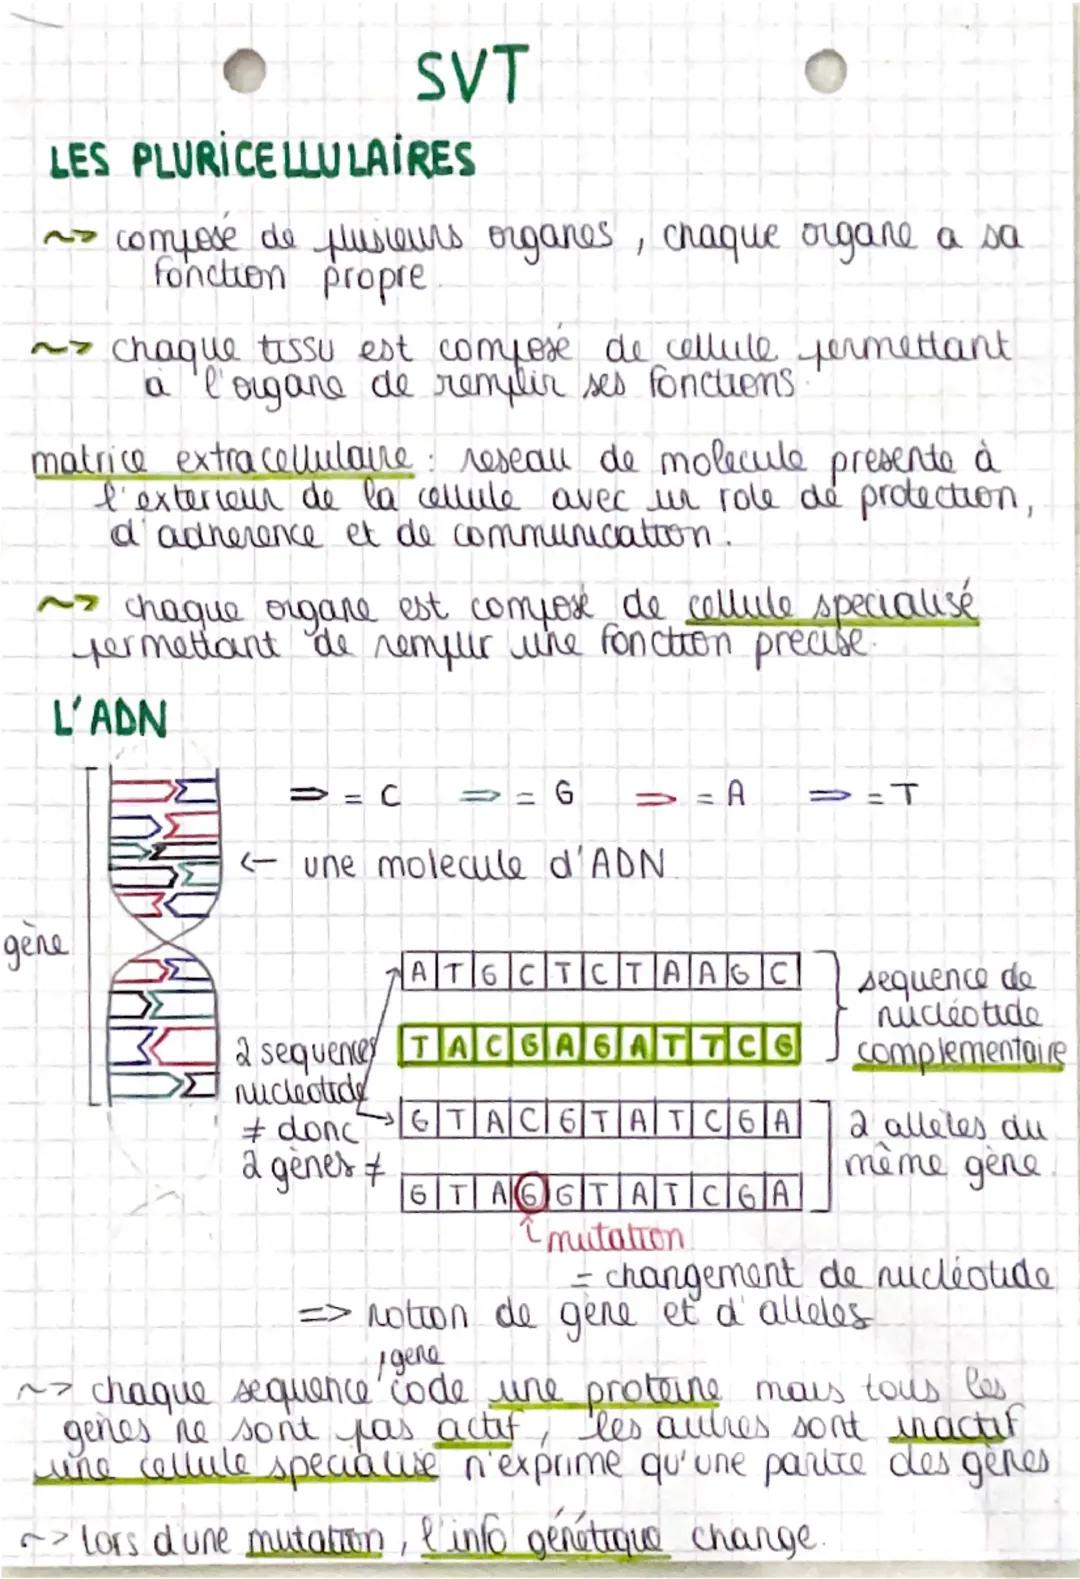 SVT
LES PLURICELLULAIRES
~> composé de plusieurs organes, chaque organe a sa
fonction propre.
~> chaque tissu est composé de cellule permettant
à l'organe de remplir ses fonctions.
matrice extracellulaire : reseau de molecule presente à
l'exterieur de la cellule avec un role de protection,
d'adherence et de communication.
~> chaque organe est composé de cellule specialisé
permettant de remplir une fonction precise.
L'ADN
⇒ = C ⇒ = G ⇒ = A ⇒ = T
← une molecule d'ADN
gène
A T G C T C T A A G C
sequence de
nucléotide
complementaire
T A C G A G A T T C G
2 sequences
nucleotide
≠ donc
2 gènes ≠
G T A C G T A T C G A
2 alleles du
même gène.
G T A G G T A T C G A
mutation
= changement de nucléotide
=> notion de gène et d'alleles
gene
~> chaque sequence code une proteine mais tous les
genes ne sont pas actif, les autres sont inactif
une cellule specialisé n'exprime qu'une partie des gènes
~> lors d'une mutation, l'info génétique change.